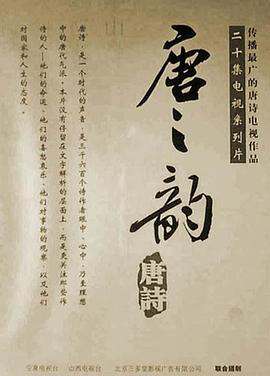 传播最广的唐诗电视作品
二十集电视系列片
唐之韵
唐詩
唐诗，是一个时代的声音，是三千六百个诗作者眼中、心中，乃至理想
中的唐代气派。本片没有停留在文字解析的层面上，而是更关注那些作
诗的人——他们的命运、他们的喜怒哀乐、他们对事物的观察，以及他们
对国家和人生的态度。
宁夏电视台 山西电视台 北京三多堂影视广告有限公司 联合摄制